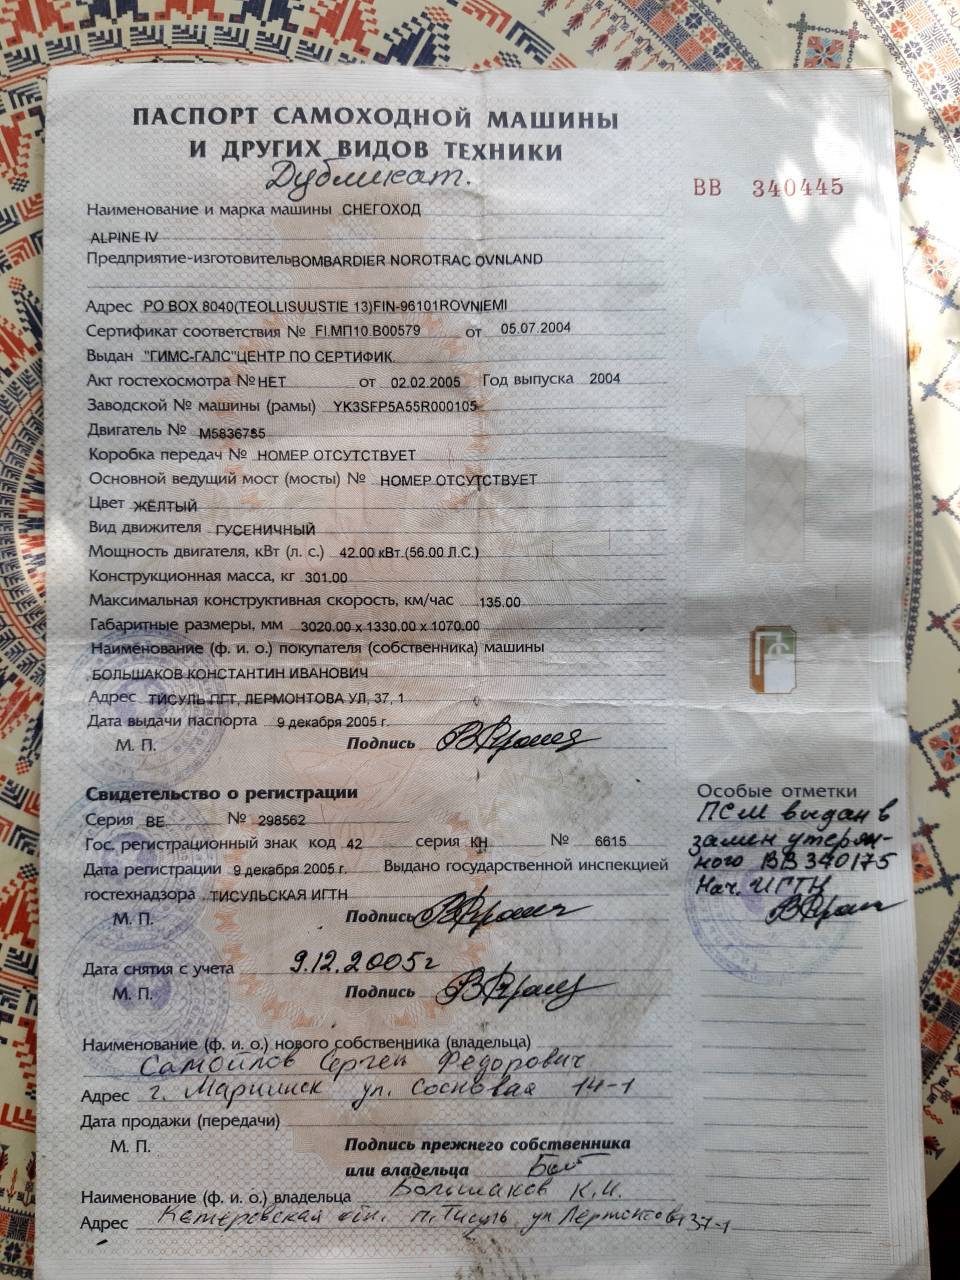 ПАСПОРТ САМОХОДНОЙ МАШИНЫ
И ДРУГИХ ВИДОВ ТЕХНИКИ
Дубликат.
ВВ 340445
Наименование и марка машины СНЕГОХОД
ALPINE IV
Предприятие-изготовитель BOMBARDIER NOROTRAC OVNLAND
Адрес PO BOX 8040(TEOLLISUUSTIE 13)FIN-96101ROVNIEMI
Сертификат соответствия № FI.МП10.В00579 от 05.07.2004
Выдан "ГИМС-ГАЛС"ЦЕНТР ПО СЕРТИФИК.
Акт гостехосмотра № НЕТ от 02.02.2005 Год выпуска 2004
Заводской № машины (рамы) YK3SFP5A55R000105
Двигатель № M5836735
Коробка передач № НОМЕР ОТСУТСТВУЕТ
Основной ведущий мост (мосты) № НОМЕР ОТСУТСТВУЕТ
Цвет ЖЁЛТЫЙ
Вид движителя ГУСЕНИЧНЫЙ
Мощность двигателя, кВт (л. с.) 42.00 кВт.(56.00 Л.С.)
Конструкционная масса, кг 301.00
Максимальная конструктивная скорость, км/час 135.00
Габаритные размеры, мм 3020.00 x 1330.00 x 1070.00
Наименование (ф. и. о.) покупателя (собственника) машины
БОЛЬШАКОВ КОНСТАНТИН ИВАНОВИЧ
Адрес ТИСУЛЬ ПГТ, ЛЕРМОНТОВА УЛ, 37, 1
Дата выдачи паспорта 9 декабря 2005 г.
М. П. Подпись
Свидетельство о регистрации
Серия ВЕ № 298562
Гос. регистрационный знак код 42 серия КН № 6615
Дата регистрации 9 декабря 2005 г. Выдано государственной инспекцией
гостехнадзора ТИСУЛЬСКАЯ ИГТН
М. П. Подпись
Дата снятия с учета 9.12.2005г
М. П. Подпись
Особые отметки
ПСМ выдан в
замен утерян-
ного ВВ 340175
Нач. ИГТН
Наименование (ф. и. о.) нового собственника (владельца)
Самойлов Сергей Федорович
Адрес г. Мариинск ул. Сосновая 14-1
Дата продажи (передачи)
М. П. Подпись прежнего собственника
или владельца
Наименование (ф. и. о.) владельца Большаков К.И.
Адрес Кемеровская обл. п. Тисуль ул Лермонтова 37-1